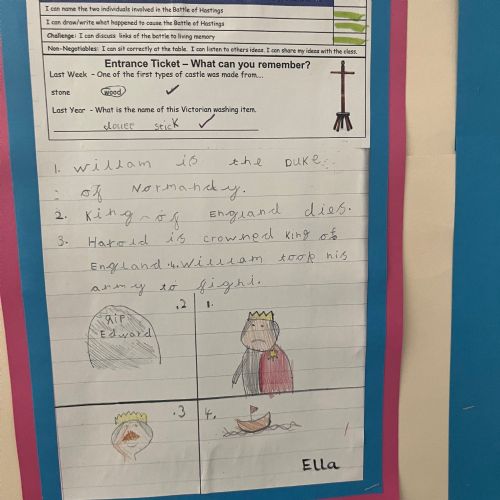 I can name the two individuals involved in the Battle of Hastings
I can draw/write what happened to cause the Battle of Hastings
Challenge: I can discuss links of the battle to living memory
Non-Negotiables: I can sit correctly at the table. I can listen to others ideas. I can share my ideas with the class.
Entrance Ticket – What can you remember?
Last Week - One of the first types of castle was made from...
stone wood
Last Year - What is the name of this Victorian washing item.
stick
1. William is the Duke
of Normandy.
2. King of England dies.
3. Harold is crowned King of
England .4. William took his
army to fight.
.2 1.
RIP
Edward
.3 4.
Ella